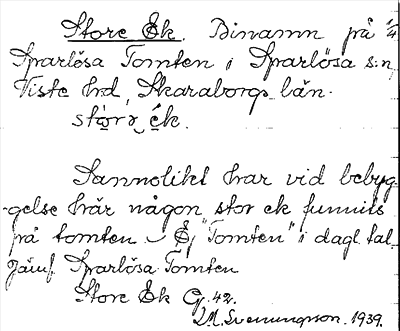 Store Ek. Binamn på 1/4
Sparlösa Tomten i Sparlösa s:n,
Viste hrd, Skaraborgs län.
stòrɤ ék.
Sannolikt har vid bebyg-
gelse här någon stor ek funnits
på tomten. Ej "Tomten" i dagl. tal.
Jämf. Sparlösa Tomten
Store Ek G. 42.
I.M. Svenungson. 1939.